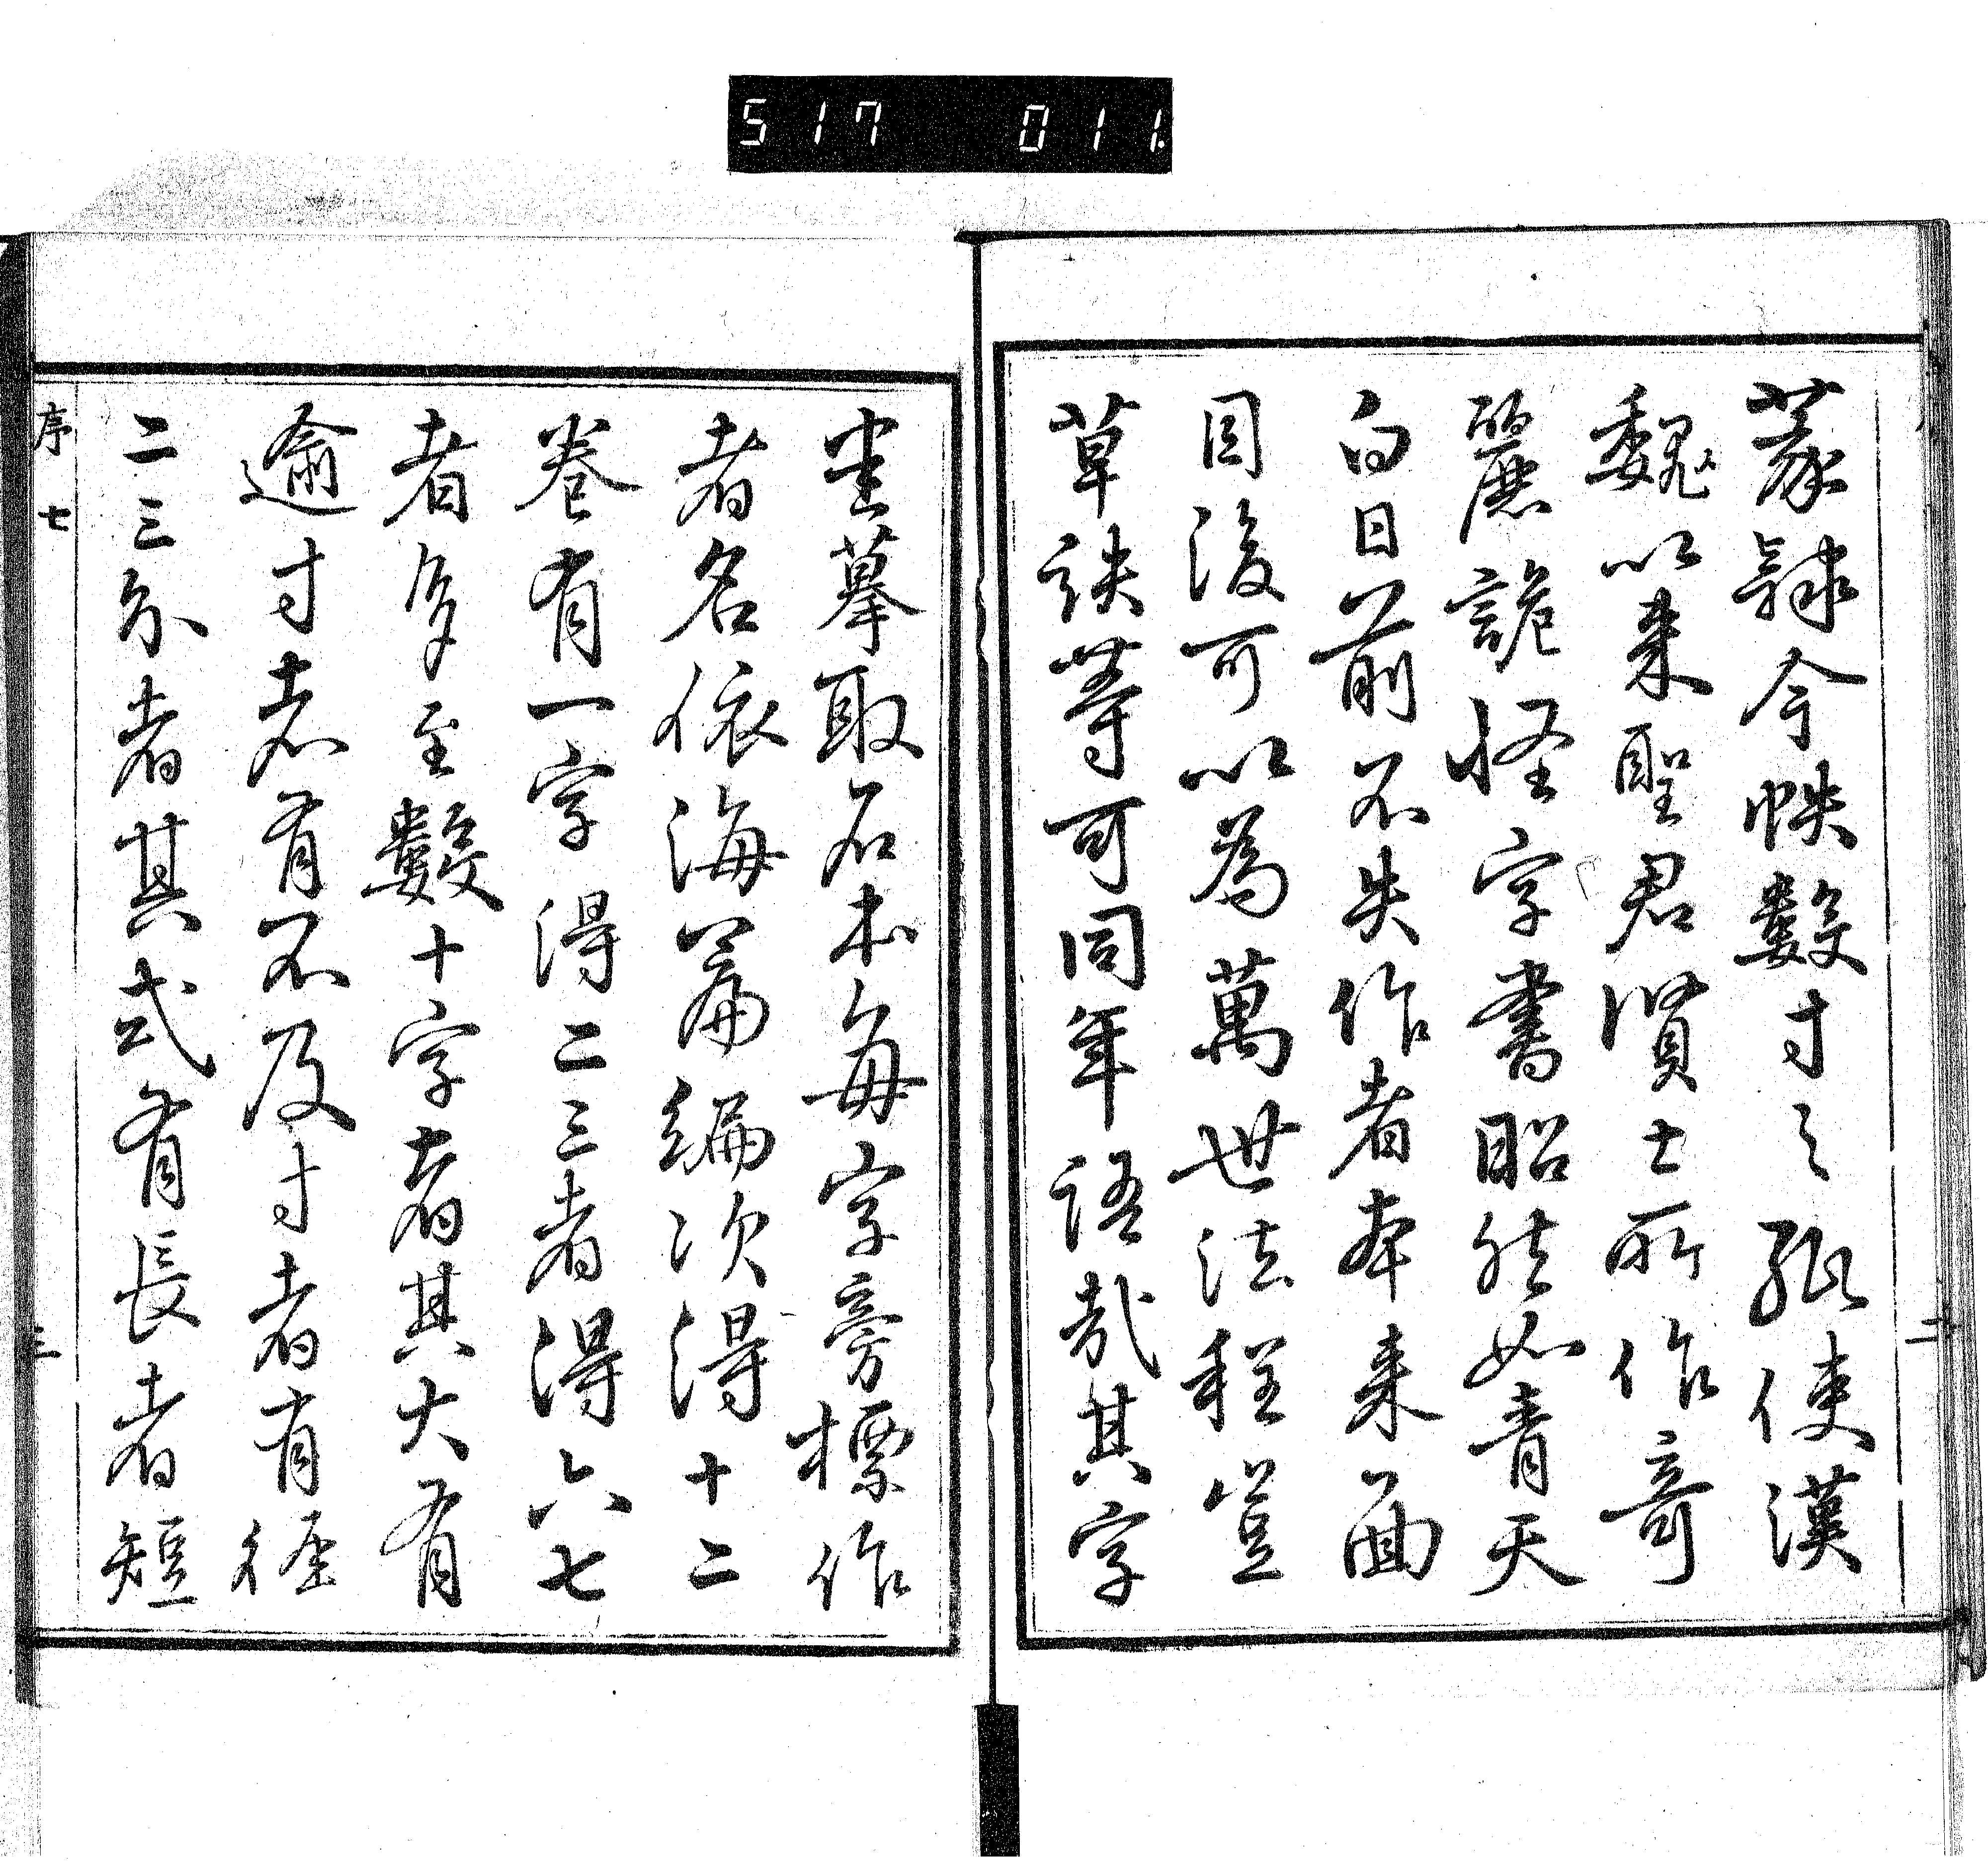 517 011.
篆隸今帙數寸之紙使漢
魏以来聖君賢士所作奇
麗詭怪字書昭然如青天
白日前不失作者本来面
目後可以為萬世法程豈
草訣等可同年語哉其字
畫摹取石本每字旁標作
者名依海篇編次得十二
卷有一字得二三者得六七
者多至數十字者其大有
逾寸者有不及寸者有徑
二三分者其式有長者短
序七
三
二